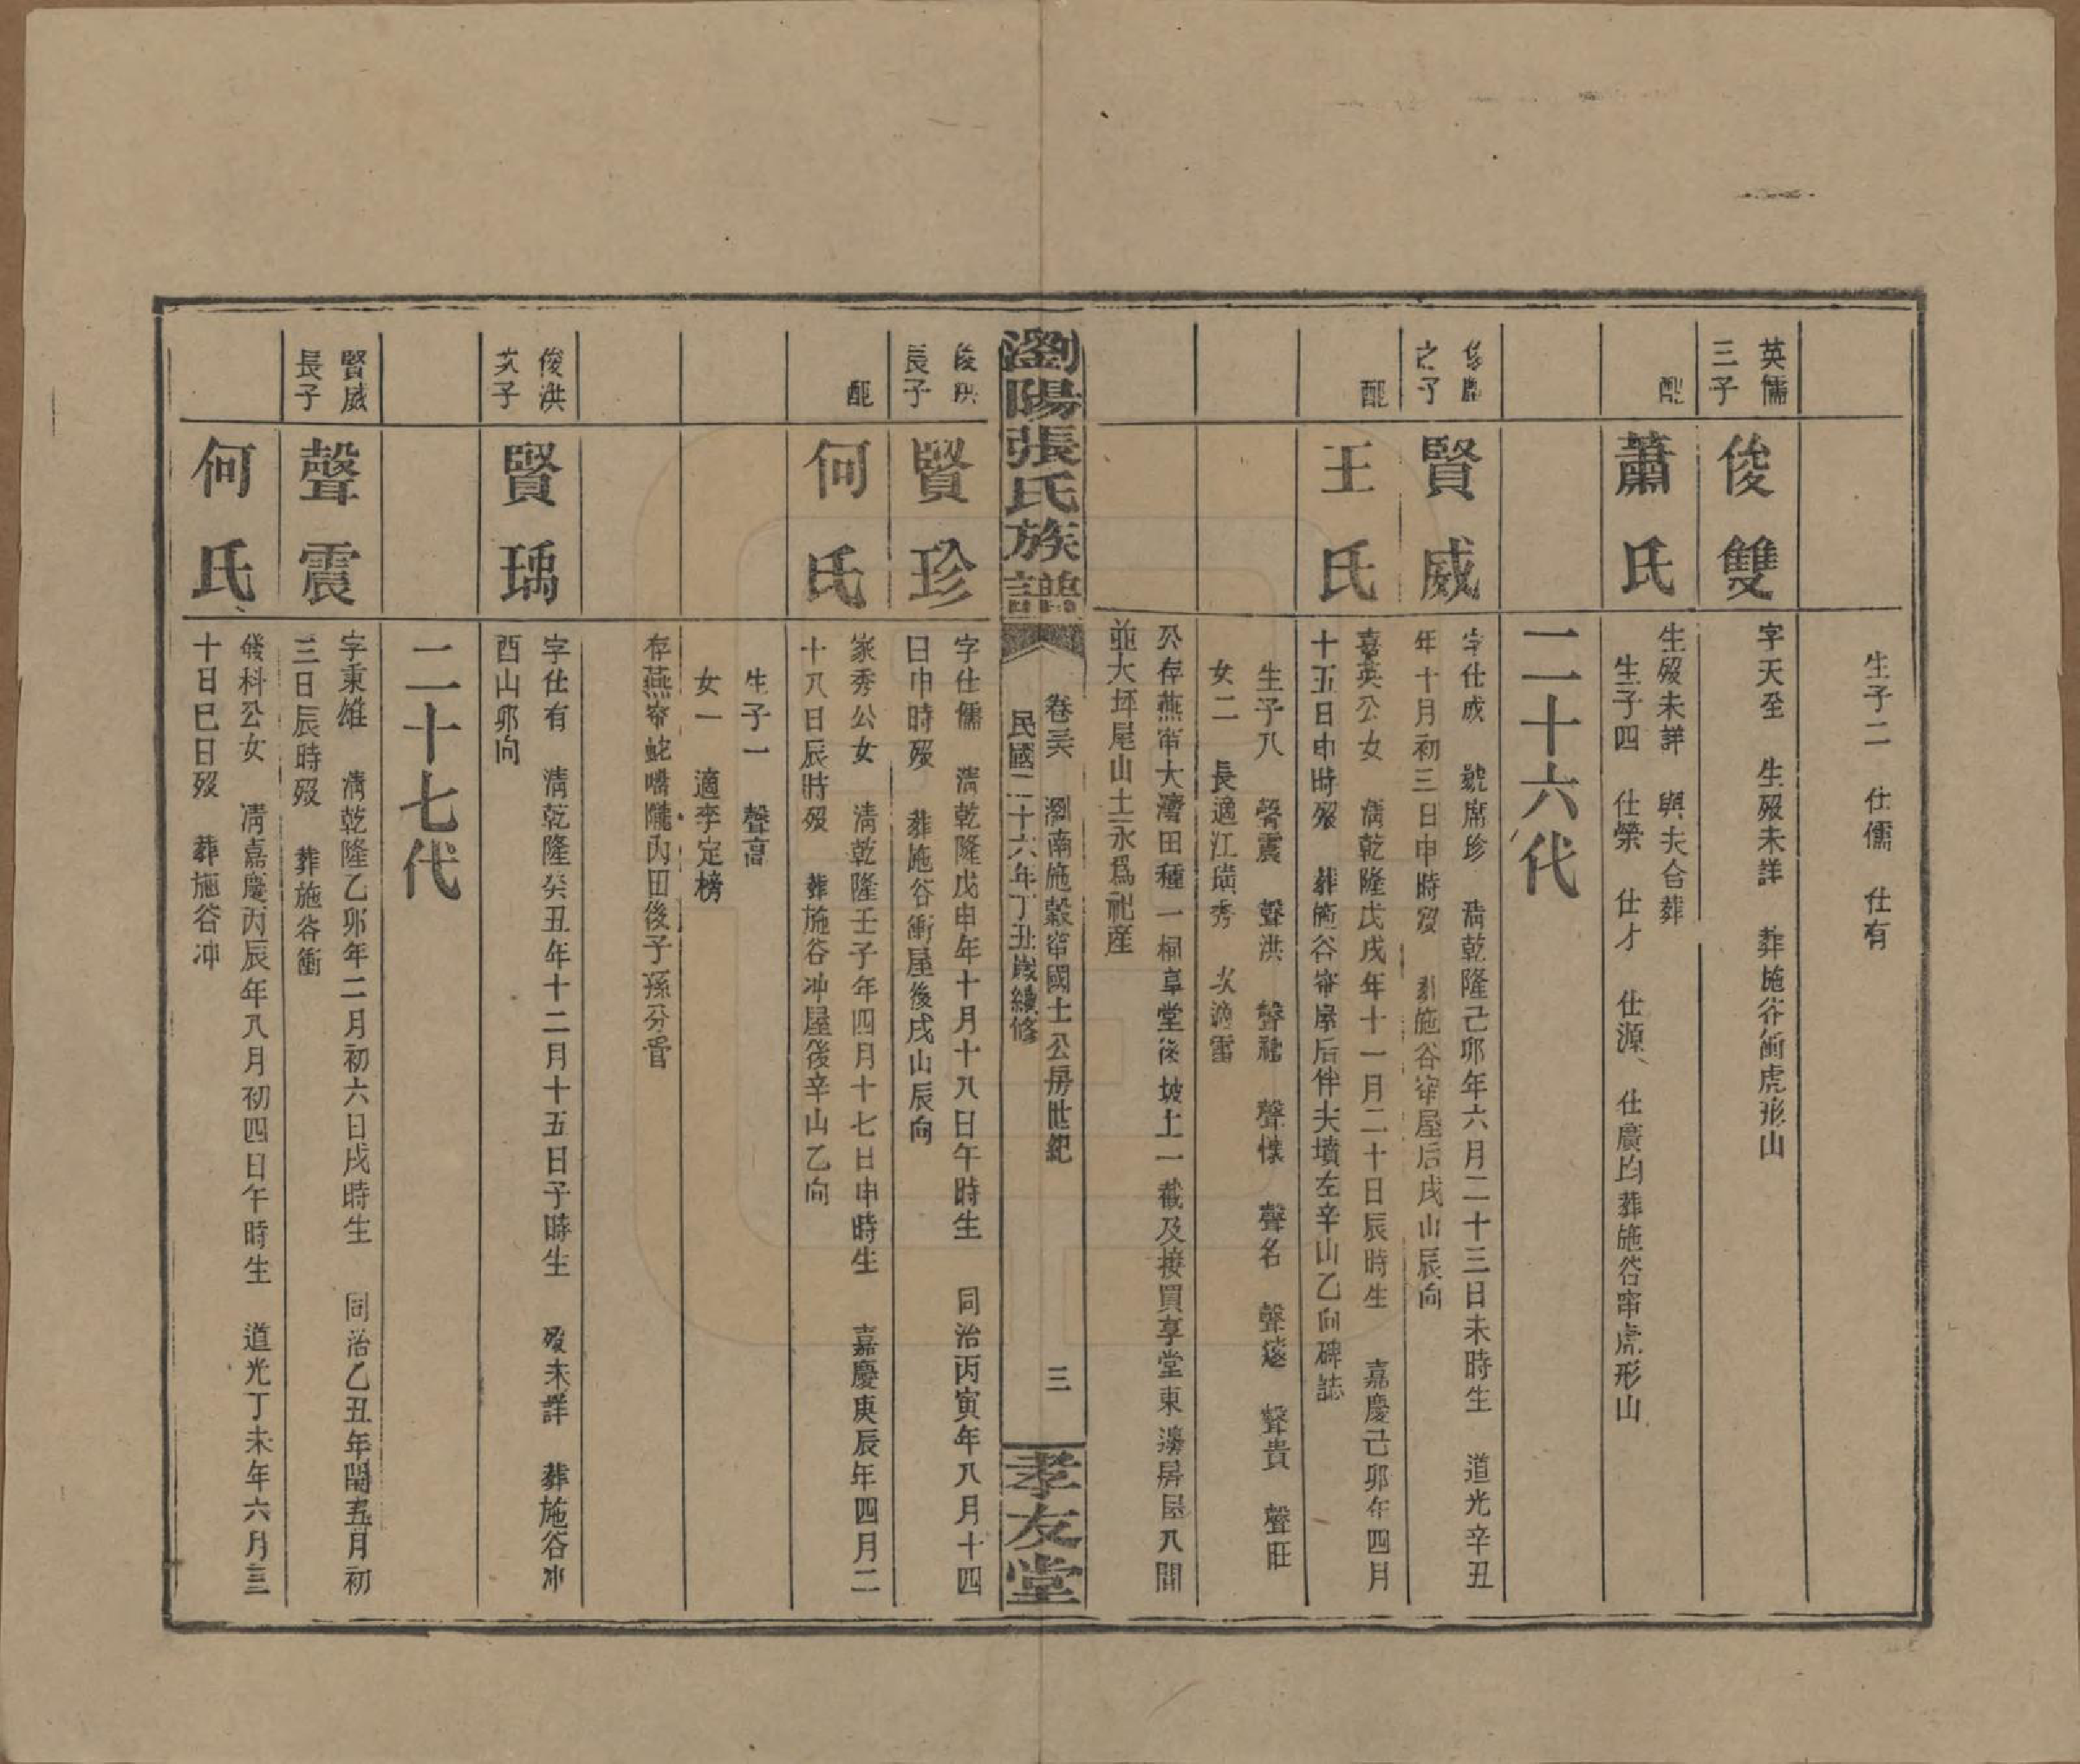 生子二　仕儒　仕有
英儒
三子
俊雙
字天至　生歿未詳　葬施谷衝虎形山
配
蕭氏
生歿未詳　與夫合葬
生子四　仕榮　仕才　仕源　仕廣均葬施谷𡧛虎形山
二十六代
之子
賢威
字仕成　號席珍　淸乾隆己卯年六月二十三日未時生　道光辛丑
年十月初三日申時歿　葬施谷𡧛屋后戌山辰向
配
王氏
嘉英公女　淸乾隆戊戌年十一月二十日辰時生　嘉慶己卯年四月
十五日申時歿　葬施谷𡧛屋后伴夫墳左辛山乙向碑誌
生子八　聲震　聲洪　聲　聲懷　聲名　聲遂　聲貴　聲旺
女二　長適江璜秀　次適雷
公存燕𡧛大灣田種一桶享堂後坡土一截及接買享堂東邊房屋八間
並大坪尾山土永爲祀産
瀏陽張氏族譜
卷三　瀏南施穀𡧛國士公房世紀
民國二十六年丁丑歲續修
三
孝友堂
俊洪
長子
賢珍
字仕儒　淸乾隆戊申年十月十八日午時生　同治丙寅年八月十四
日申時歿　葬施谷衝屋後戌山辰向
配
何氏
家秀公女　淸乾隆壬子年四月十七日申時生　嘉慶庚辰年四月二
十八日辰時歿　葬施谷冲屋後辛山乙向
生子一　聲高
女一　適李定榜
存燕𡧛蛇嘴隴内田後子孫分管
俊洪
次子
賢瑀
字仕有　淸乾隆癸丑年十二月十五日子時生　歿未詳　葬施谷冲
酉山卯向
二十七代
賢威
長子
聲震
字秉雄　淸乾隆乙卯年二月初六日戌時生　同治乙丑年閏五月初
三日辰時歿　葬施谷衝
何氏
發科公女　淸嘉慶丙辰年八月初四日午時生　道光丁未年六月三
十日巳日歿　葬施谷冲